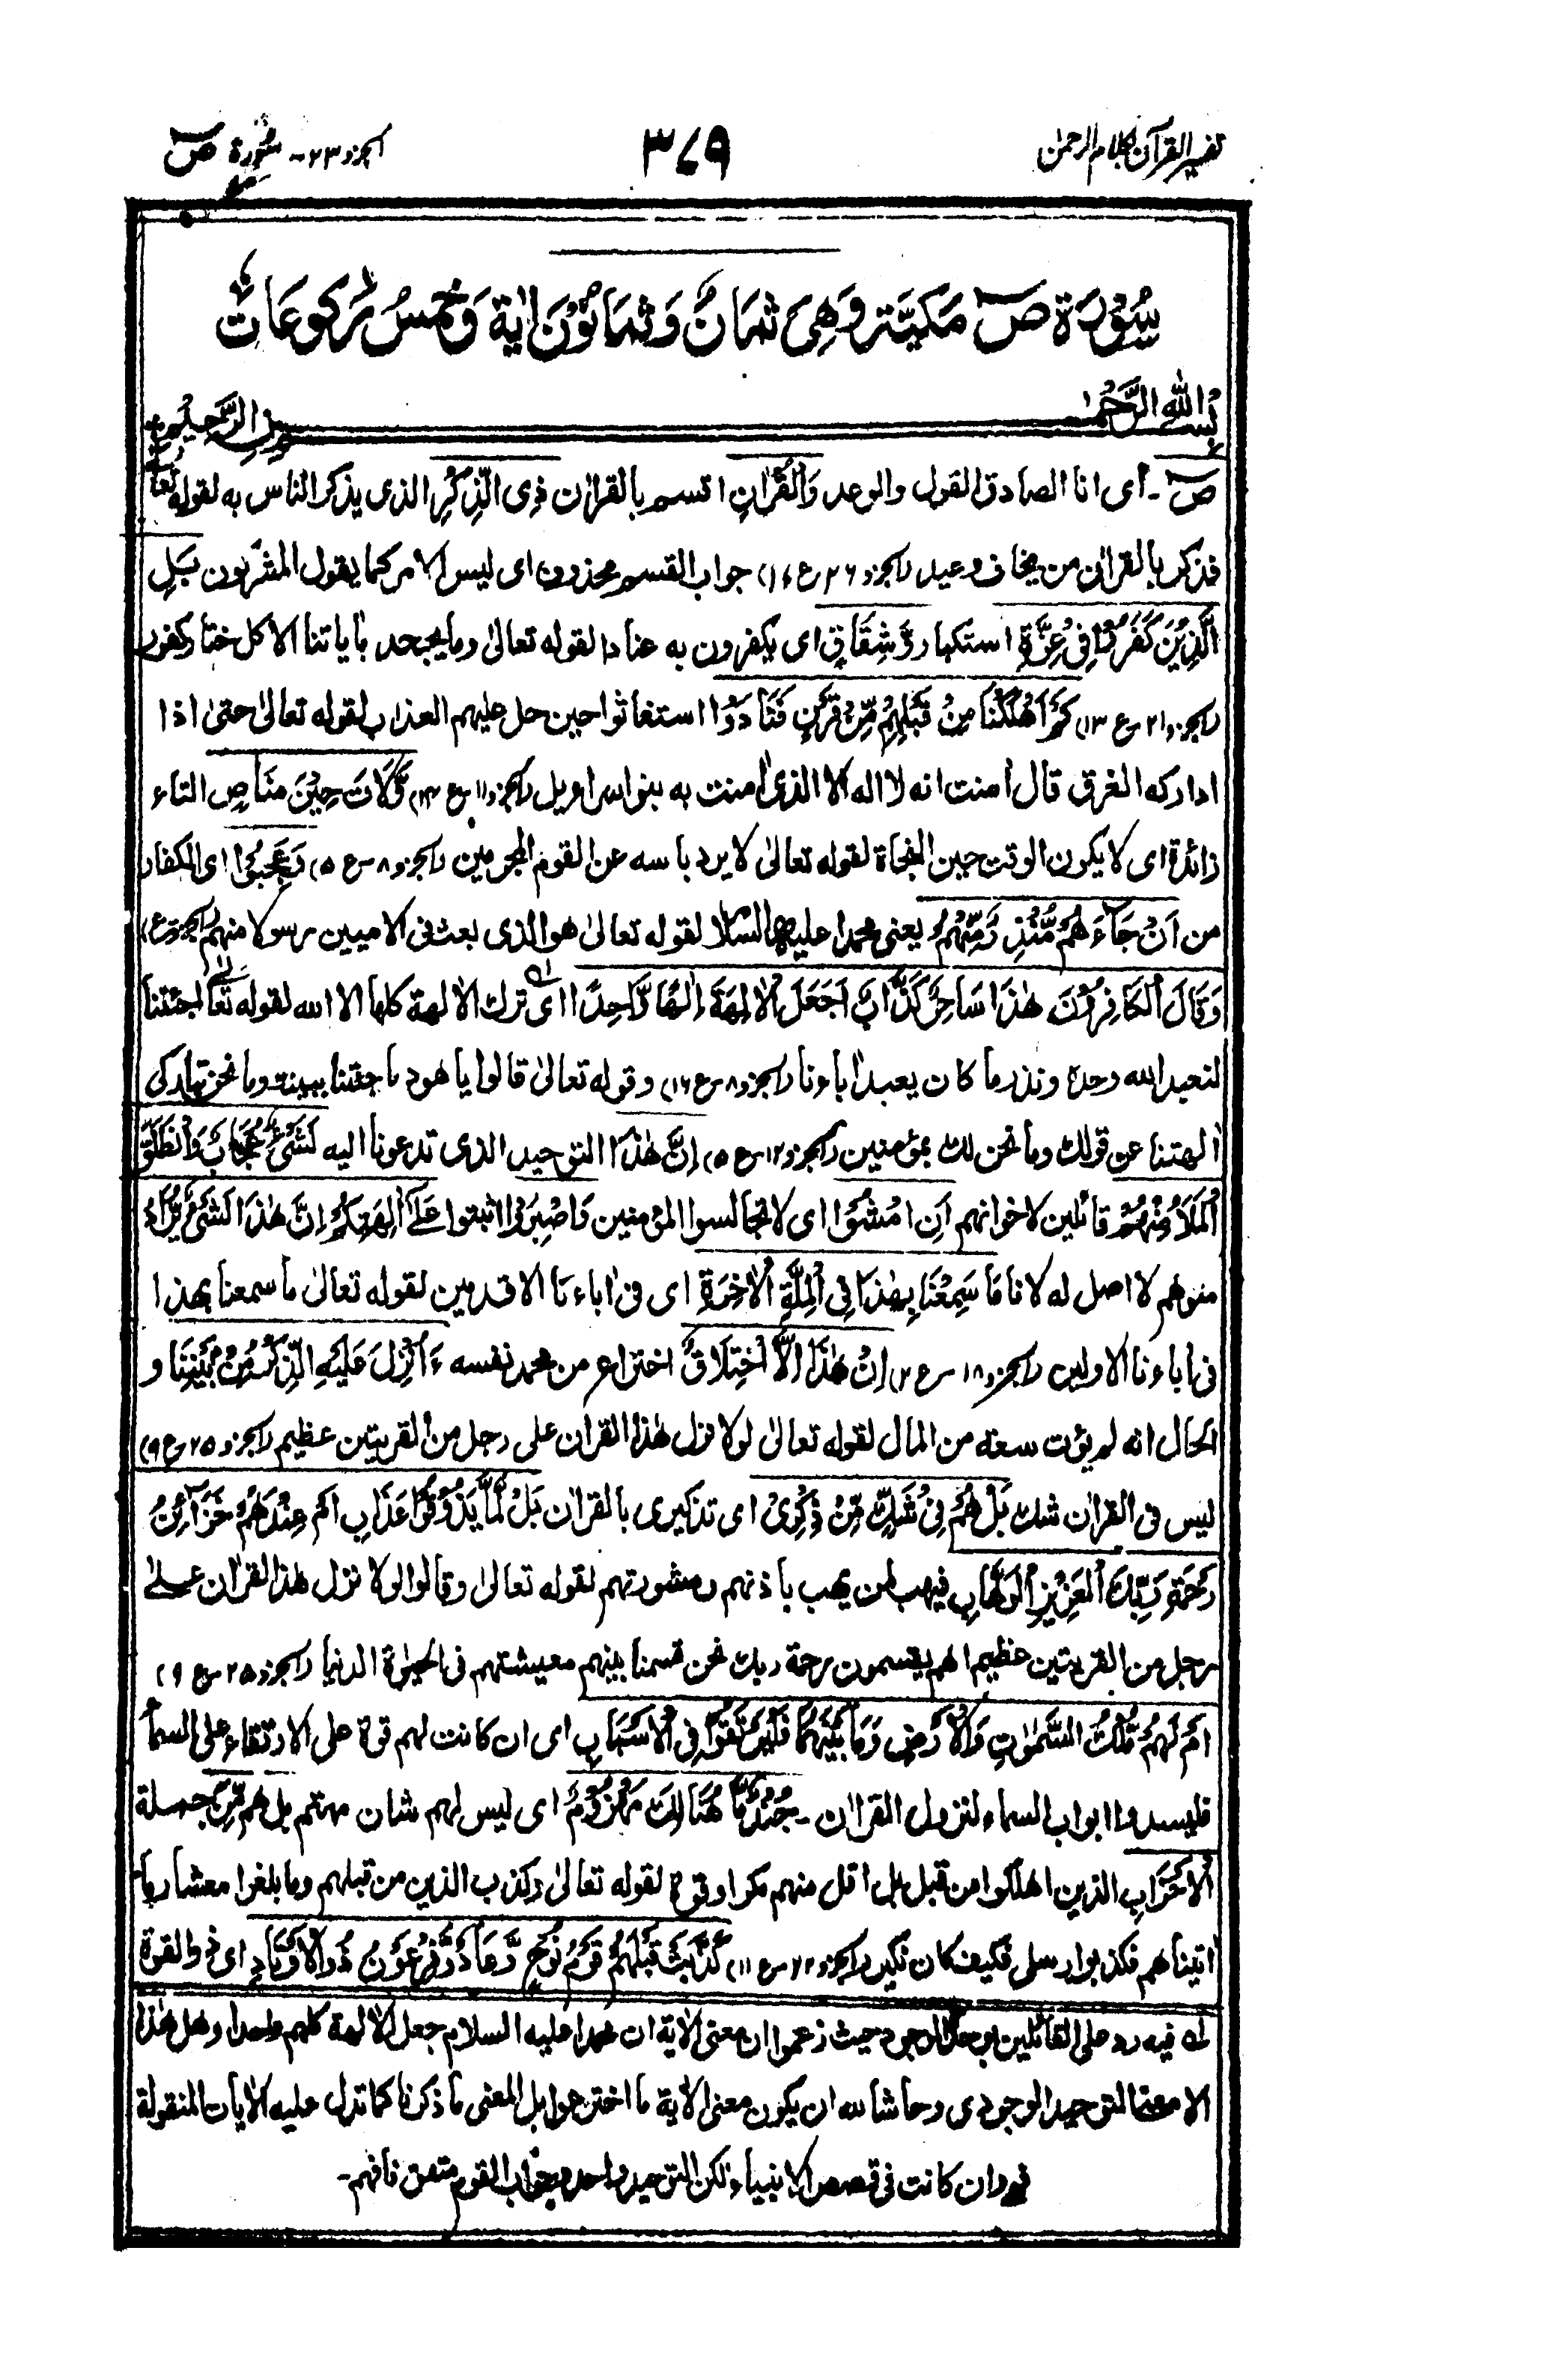 تفسیر القرآن بکلام الرحمن
۳۷۹
الجزو ۲۳- سورة ص
سُوْرَة صٓ مَکیَّة وَهِیَ ثمَانٌ وَثَمَانُوْنَ اٰیة وَخَمْسُ رَکوعَات
بِسْمِ اللهِ الرَّحْمٰنِ الرَّحِیْمِ
صٓ۔ ای انا الصادق القول والوعد وَالْقُرْاٰنِ اقسم بالقراٰن ذِی الذِّکْرِ الذی یذکر الناس به لقوله تعالیٰ
فذکر بالقراٰن من یخاف وعید (الجزو ۲۶ ع ۱۶) جواب القسم محذوف ای لیس الامر کما یقول المشرکون بَلِ
الَّذِیْنَ کَفَرُوْا فِیْ عِزَّةٍ استکبار وَّشِقَاقٍ ای یکفرون به عنادا لقوله تعالیٰ وما یجحد باٰیاتنا الا کل ختار کفور
(الجزو ۲۱ ع ۱۳) کَمْ اَهْلَکْنَا مِنْ قَبْلِهِمْ مِّنْ قَرْنٍ فَنَادَوْا استغاثوا حین حل علیهم العذاب لقوله تعالیٰ حتیٰ اذا
ادارکه الغرق قال اٰمنت انه لا اله الا الذی اٰمنت به بنو اسراویل (الجزو ۱۱ ع ۱۴) وَّلَاتَ حِیْنَ مَنَاصٍ التاء
زائدة ای لا یکون الوقت حین النجاة لقوله تعالیٰ لا یرد باسه عن القوم المجرمین (الجزو ۸ ع ۵) وَعَجِبُوْا ای الکفار
من اَنْ جَآءَهُمْ مُّنْذِرٌ مِّنْهُمْ یعنی محمدا علیه السلام لقوله تعالیٰ هو الذی بعث فی الامیین رسولا منهم
وَقَالَ الْکَافِرُوْنَ هٰذَا سَاحِرٌ کَذَّابٌ اَجَعَلَ الْاٰلِهَةَ اِلٰهًا وَّاحِدًا ای ترك الاٰلهة کلها الا الله لقوله تعالیٰ اجئتنا
لنعبد الله وحده ونذر ما کان یعبد اٰباءنا (الجزو ۸ ع ۱۶) وقوله تعالیٰ قالوا یا هود ما جئتنا ببینة وما نحن بتارکی
اٰلهتنا عن قولك وما نحن لك بمؤمنین (الجزو ۱۲ ع ۵) اِنَّ هٰذَا التوحید الذی تدعونا الیه لَشَیْءٌ عُجَابٌ وَانْطَلَقَ
الْمَلَاُ مِنْهُمْ قائلین لاخوانهم اَنِ امْشُوْا ای لا تجالسوا المؤمنین وَاصْبِرُوْا اثبتوا عَلٰٓی اٰلِهَتِکُمْ اِنَّ هٰذَا لَشَیْءٌ یُّرَادُ
لا اصل له لانا مَا سَمِعْنَا بِهٰذَا فِی الْمِلَّةِ الْاٰخِرَةِ ای فی اٰباءنا الاقدمین لقوله تعالیٰ ما سمعنا بهذا
فی اٰباءنا الاولین (الجزو ۱۸ ع ۲) اِنْ هٰذَا اِلَّا اخْتِلَاقٌ اختراع من محمد نفسه ءَاُنْزِلَ عَلَیْهِ الذِّکْرُ مِنْ بَیْنِنَا و
الحال انه لم یؤت سعة من المال لقوله تعالیٰ لولا نزل هٰذا القراٰن علی رجل من القریتین عظیم (الجزو ۲۵ ع ۹)
لیس فی القراٰن شك بَلْ هُمْ فِیْ شَكٍّ مِّنْ ذِکْرِیْ ای تذکیری بالقراٰن بَلْ لَّمَّا یَذُوْقُوْا عَذَابِ اَمْ عِنْدَهُمْ خَزَآئِنُ
رَحْمَةِ رَبِّكَ الْعَزِیْزِ الْوَهَّابِ فیهب لمن یهب باذنهم ومشورتهم لقوله تعالیٰ وقالوا لولا نزل هٰذا القراٰن علیٰ
رجل من القریتین عظیم اهم یقسمون رحمة ربك نحن قسمنا بینهم معیشتهم فی الحیٰوة الدنیا (الجزو ۲۵ ع ۹)
اَمْ لَهُمْ مُّلْكُ السَّمٰوٰتِ وَالْاَرْضِ وَمَا بَیْنَهُمَا فَلْیَرْتَقُوْا فِی الْاَسْبَابِ ای ان کانت لهم قوة علی الارتقاء علی السماء
فلیسدوا ابواب السماء لنزول القراٰن۔ جُنْدٌ مَّا هُنَالِكَ مَهْزُوْمٌ ای لیس لهم شان مهتم بل هم مِّنَ جملة
الْاَحْزَابِ الذین اهلکوا من قبل بل اقل منهم مکرا وقوة لقوله تعالیٰ وکذب الذین من قبلهم وما بلغوا معشار ما
اٰتیناهم فکذبوا رسلی فکیف کان نکیر (الجزو ۲۲ ع ۱۱) کَذَّبَتْ قَبْلَهُمْ قَوْمُ نُوْحٍ وَّعَادٌ وَّفِرْعَوْنُ ذُو الْاَوْتَادِ ای ذو القوة
له فیه رد علی القائلین بوحدة الوجود حیث زعموا ان معنی الاٰیة ان محمدا علیه السلام جعل الاٰلهة کلهم واحدا وهل هٰذا
الا معنی التوحید الوجودی وحاشا لله ان یکون معنی الاٰیة ما اخترعوا بل المعنی ما ذکرنا کما تدل علیه الاٰیات المنقولة
وان کانت فی قصص الانبیاء لکن التوحید واحد وجواب القوم متفق فافهم۔